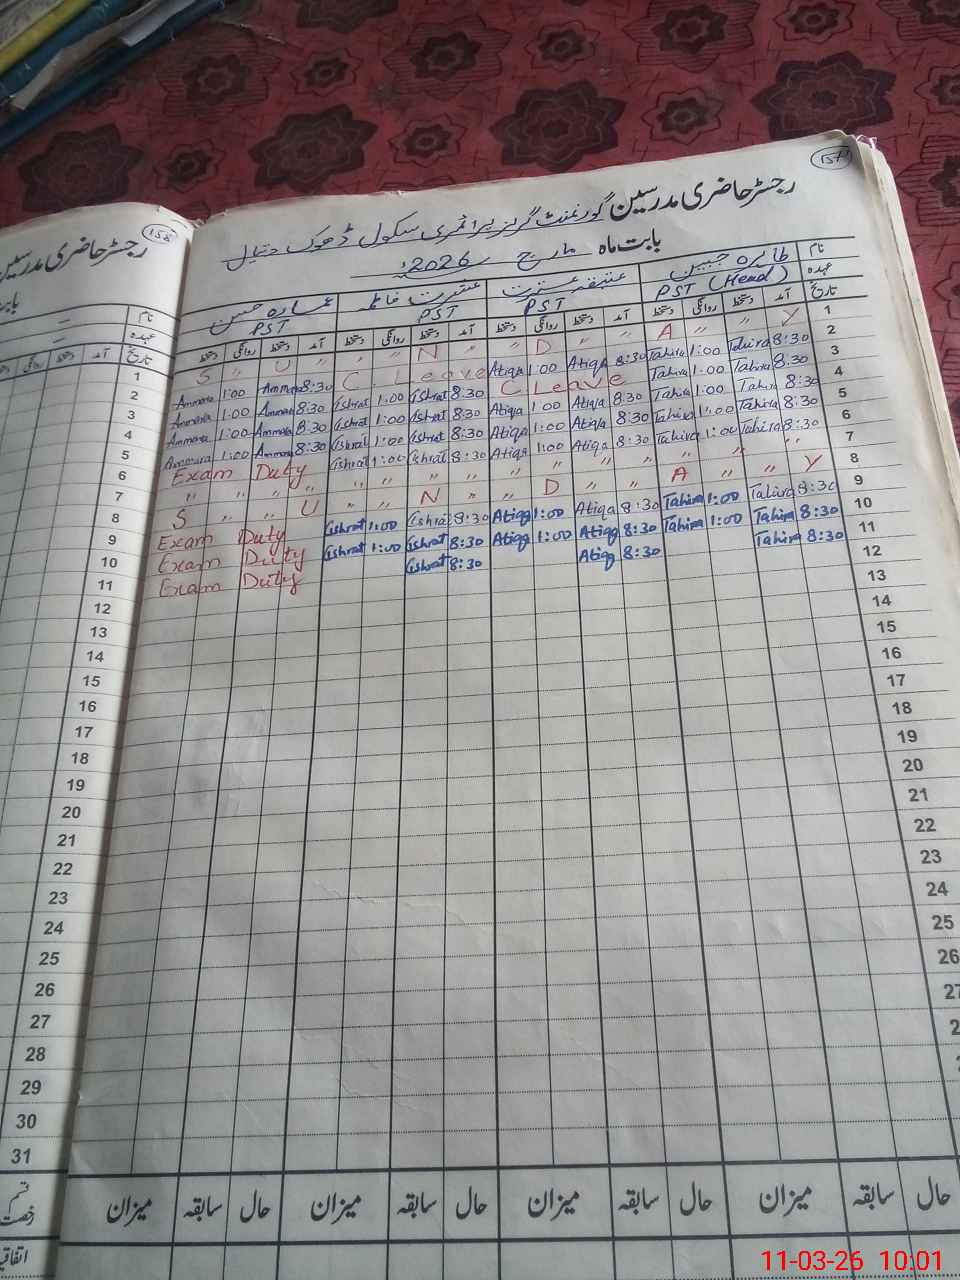 157
رجسٹر حاضری مدرسین گورنمنٹ گرلز پرائمری سکول ڈھوک
بابت ماہ مارچ 2026ء
نام طاہرہ جبین عتیقہ عشرت عشرت فاطمہ عمارہ حسین
عہدہ PST (Head) PST PST PST
تاریخ آمد دستخط روانگی دستخط آمد دستخط روانگی دستخط آمد دستخط روانگی دستخط آمد دستخط روانگی دستخط
1 S " U " " N " " D " " A " " Y
2 Ammara 1:00 Ammara 8:30 C. Leave Atiqa 1:00 Atiqa 8:30 Tahira 1:00 Tahira 8:30
3 Ammara 1:00 Ammara 8:30 Ishrat 1:00 Ishrat 8:30 C Leave Tahira 1:00 Tahira 8:30
4 Ammara 1:00 Ammara 8:30 Ishrat 1:00 Ishrat 8:30 Atiqa 1:00 Atiqa 8:30 Tahira 1:00 Tahira 8:30
5 Ammara 1:00 Ammara 8:30 Ishrat 1:00 Ishrat 8:30 Atiqa 1:00 Atiqa 8:30 Tahira 1:00 Tahira 8:30
6 Exam Duty Ishrat 1:00 Ishrat 8:30 Atiqa 1:00 Atiqa 8:30 Tahira 1:00 Tahira 8:30
7 " " " " " " " " " " " " " "
8 S " " U " " N " " D " " A " " Y
9 Exam Duty Ishrat 1:00 Ishrat 8:30 Atiqa 1:00 Atiqa 8:30 Tahira 1:00 Tahira 8:30
10 Exam Duty Ishrat 1:00 Ishrat 8:30 Atiqa 1:00 Atiqa 8:30 Tahira 1:00 Tahira 8:30
11 Exam Duty Ishrat 8:30 Atiqa 8:30 Tahira 8:30
12
13
14
15
16
17
18
19
20
21
22
23
24
25
26
27
حال سابقہ میزان حال سابقہ میزان حال سابقہ میزان حال سابقہ میزان
158
رجسٹر حاضری مدرسین
نام
عہدہ
تاریخ آمد دستخط روانگی
1
2
3
4
5
6
7
8
9
10
11
12
13
14
15
16
17
18
19
20
21
22
23
24
25
26
27
28
29
30
31
قسم رخصت
11-03-26 10:01